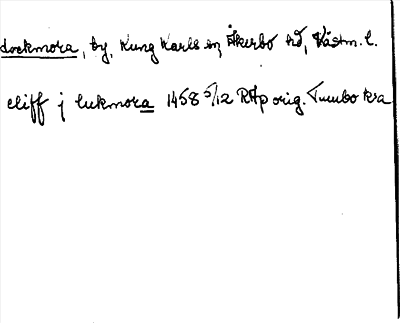 Lockmora, by, Kung Karls sn, Åkerbo hd, Västm. l.
cliff j lukmora 1458 5/12 RAp orig. Tumbo ka